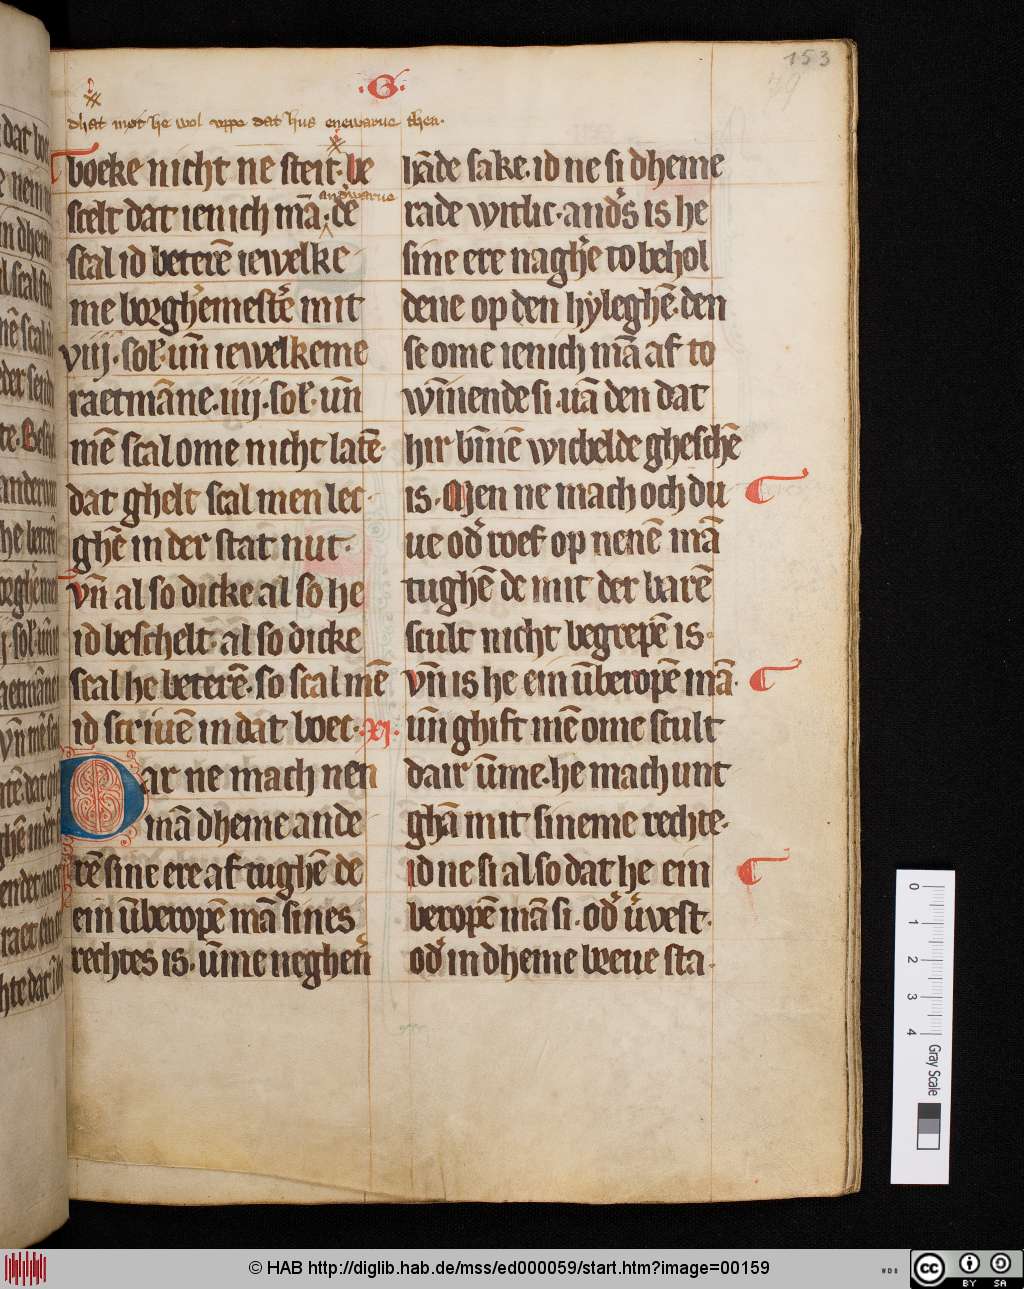 153
79
·G·
dhat mot he wol vppe dat hus enewarue thea·
boeke nicht ne steit· be
andwarue
scelt dat ienich mā· de
scal id beterē iewelke
me borghemestē mit
viij· sol· un̄ iewelkeme
raetmāne· iiij· sol· un̄
mē scal ome nicht latē·
dat ghelt scal men lec
ghē in der stat nut·
vn̄ al so dicke al so he
id beschelt· al so dicke
scal he beterē· so scal mē
id scriuē in dat boec· xj·
Dar ne mach nen
mā dheme ande
rē sine ere af tughē de
ein v̄beropē mā sines
rechtes is· v̄me neghen
hāde sake· id ne si dheme
rade witlic· anders is he
sine ere naghe to behol
dene op den hyleghē· den
se ome ienich mā af to
win̄ende si· uā den dat
hir bin̄ē wicbelde gheschē
is· Men ne mach och du
ue oder roef op nenē mā
tughē de mit der barē
scult nicht begrepē is·
vn̄ is he ein v̄beropē mā·
un̄ ghift mē ome scult
dair v̄me· he mach unt
ghā mit sineme rechte·
id ne si al so dat he ein
beropē mā si· oder v̄vest·
oder in dheme breue sta·
0 1 2 3 4 Gray Scale
© HAB http://diglib.hab.de/mss/ed000059/start.htm?image=00159
WDB
cc BY SA